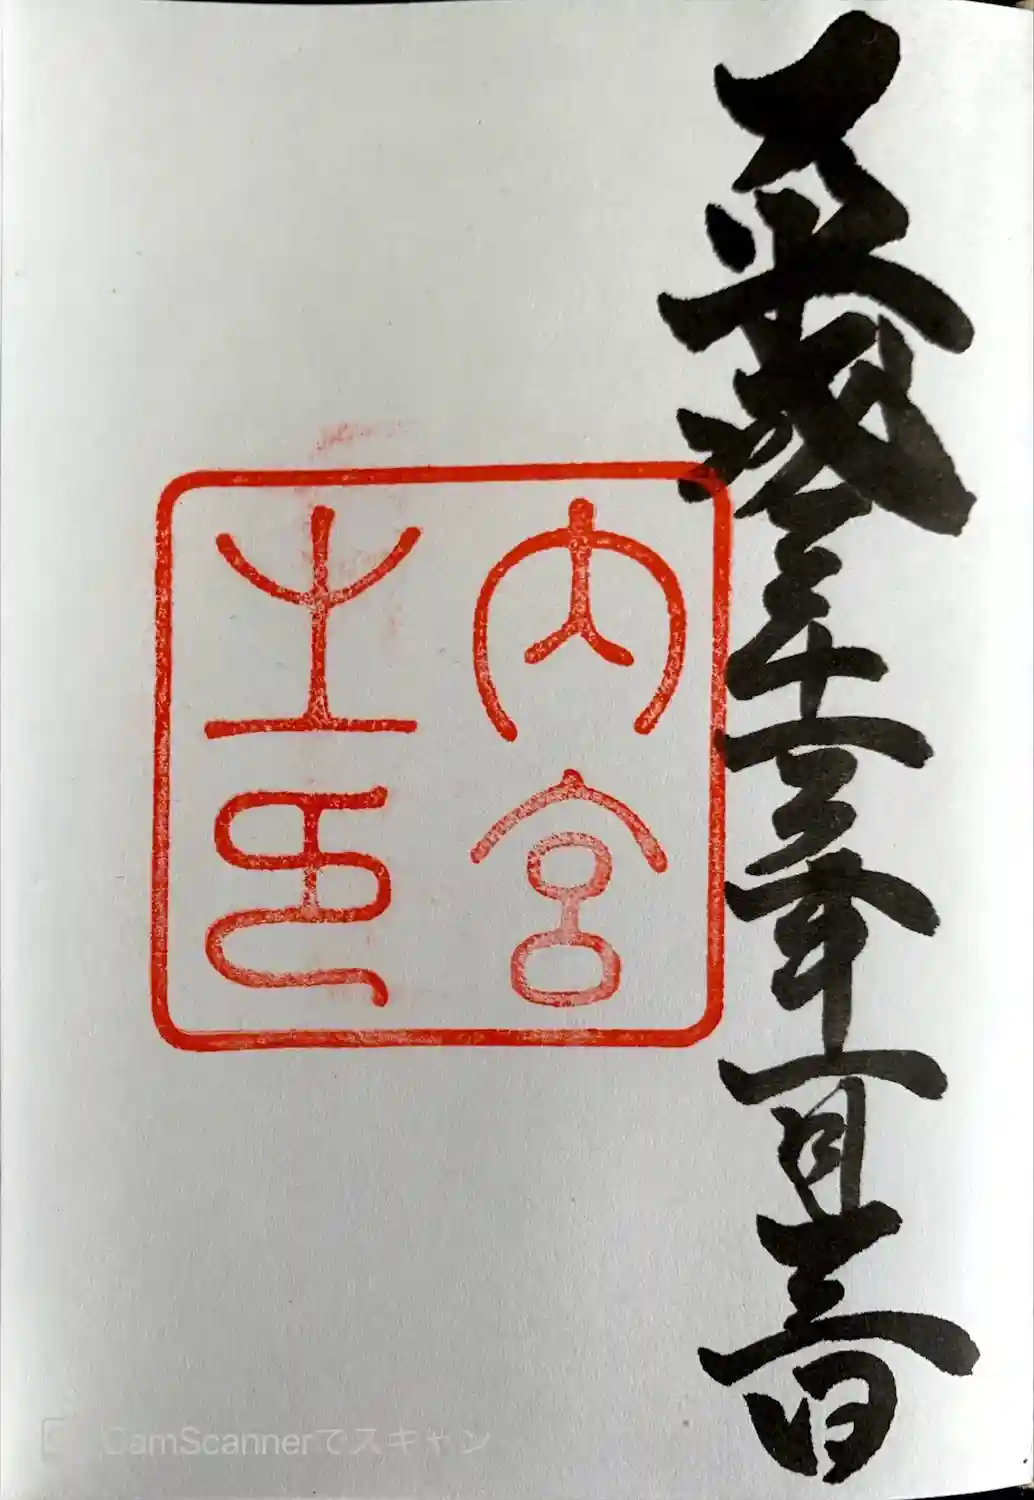 平成三十一年一月三日
内宮
之印
CamScannerでスキャン